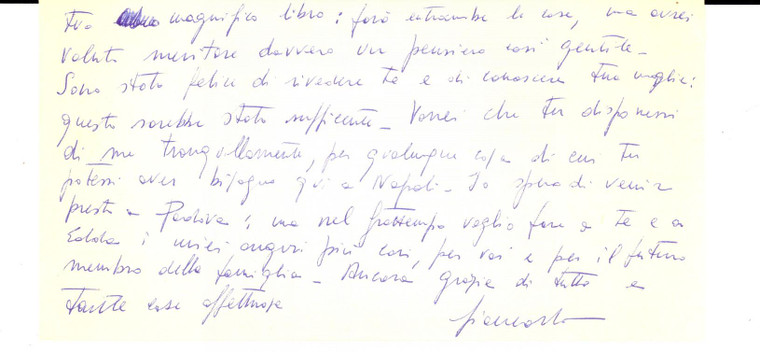 tuo magnifico libro: farò entrambe le cose, ma avrei
voluto meritare davvero un pensiero così gentile -
Sono stato felice di rivedere te e di conoscere tua moglie:
questo sarebbe stato sufficente - Vorrei che tu disponessi
di me tranquillamente, per qualunque cosa di cui tu
potessi aver bisogno qui a Napoli - Io spero di venir
presto a Padova; ma nel frattempo voglio fare a te e a
Edda i miei auguri più cari, per voi e per il futuro
membro della famiglia - Ancora grazie di tutto e
tante cose affettuose
Giancarlo